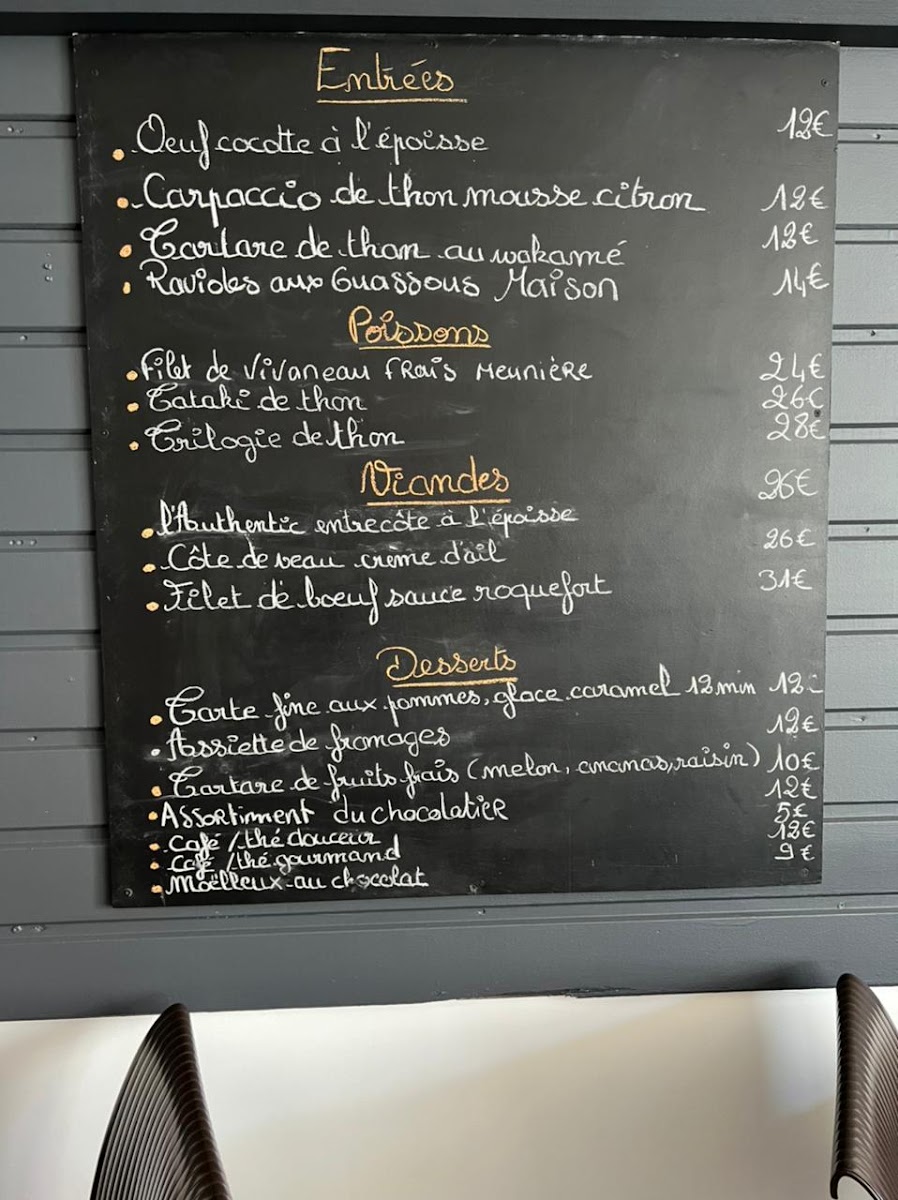 Entrées
Oeuf cocotte à l'époisse 12€
Carpaccio de thon mousse citron 12€
Tartare de thon au wakamé 12€
Ravioles aux Ouassous Maison 14€
Poissons
Filet de Vivaneau frais Meunière 24€
Tataki de thon 26€
Trilogie de thon 28€
Viandes
l'Authentic entrecôte à l'époisse 26€
Côte de veau crème d'ail 26€
Filet de boeuf sauce roquefort 31€
Desserts
Tarte fine aux pommes, glace caramel 12min 12€
Assiette de fromages 12€
Tartare de fruits frais (melon, ananas, raisin) 10€
Assortiment du chocolatier 12€
Café / thé douceur 5€
Café / thé gourmand 12€
Moëlleux au chocolat 9€